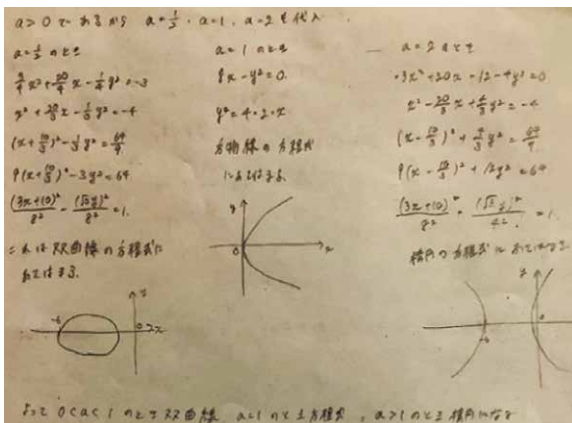 a>0であるから a=1/2, a=1, a=2を代入
a=1/2のとき
x²+20/3x-1/3y²=-4
(x+10/3)²-1/3y²=64/9
9(x+10/3)²-3y²=64
(3x+10)²/8²-(√3y)²/8²=1.
これは双曲線の方程式に
あてはまる.
-6 0 2x
a=1のとき
8x-y²=0.
y²=4・2・x
放物線の方程式
にあてはまる.
y
0 x
a=2のとき
-3x²+20x-12-4y²=0
x²-20/3x+4/3y²=-4
(x-10/3)²+4/3y²=64/9
9(x-10/3)²+12y²=64
(3x+10)²/8² (√3y)²/4² =1.
楕円の方程式にあてはまる
y
-6 0
よって 0<a<1のとき双曲線 a=1のとき 方程式, a>1のとき楕円になる